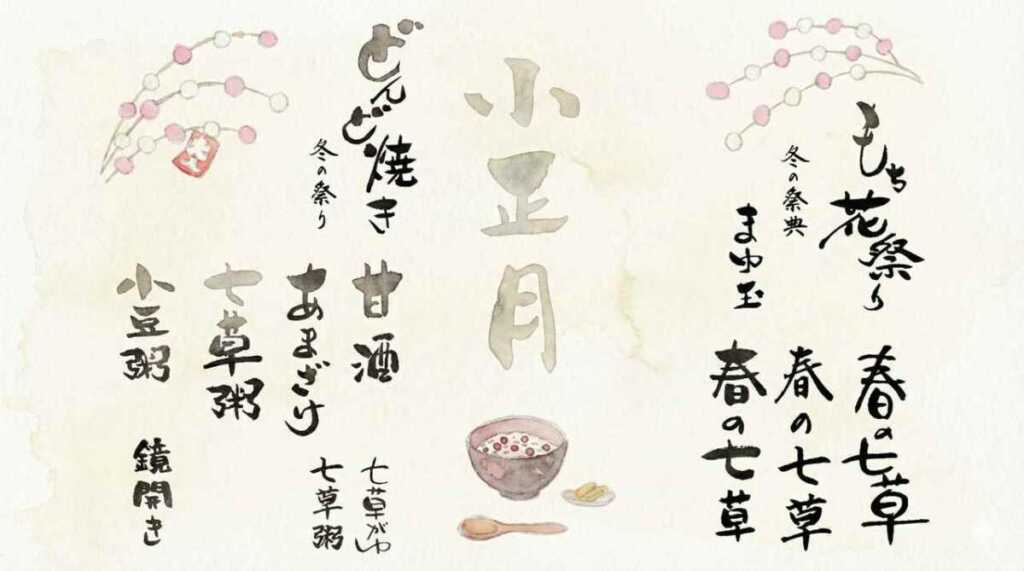 もち花祭り
冬の祭典
まゆ玉
春の七草
春の七草
春の七草
小正月
どんど焼き
冬の祭り
甘酒
あまざけ
七草粥
小豆粥
七草がゆ
七草粥
鏡開き